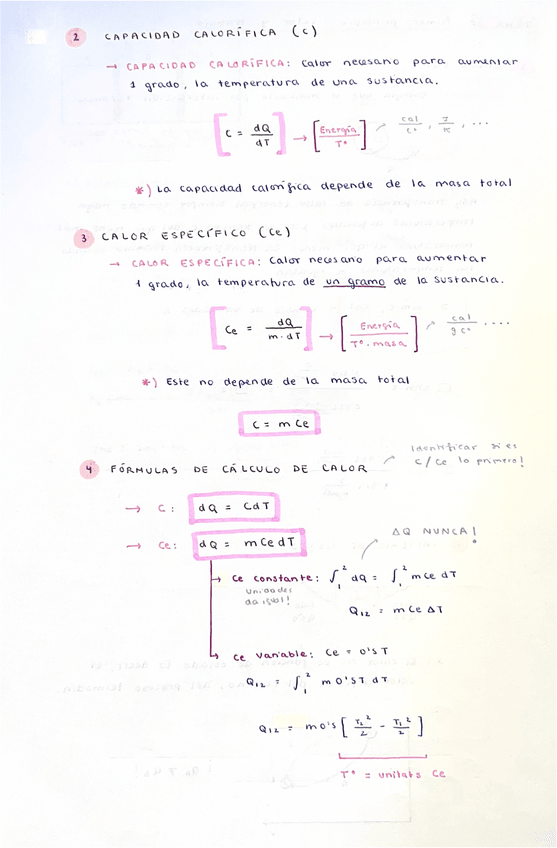 2 CAPACIDAD CALORÍFICA (C)
→ CAPACIDAD CALORÍFICA: Calor necesario para aumentar
1 grado, la temperatura de una sustancia.
[C = dQ/dT] → [Energía/Tº] cal/Cº, J/K, ...
*) La capacidad calorífica depende de la masa total
3 CALOR ESPECÍFICO (Ce)
→ CALOR ESPECÍFICA: Calor necesario para aumentar
1 grado, la temperatura de un gramo de la sustancia.
[Ce = dQ/m·dT] → [Energía/Tº·masa] cal/g Cº, ...
*) Este no depende de la masa total
C = m Ce
Identificar si es
C/Ce lo primero!
4 FÓRMULAS DE CÁLCULO DE CALOR
→ C: dQ = CdT
→ Ce: dQ = mCedT
ΔQ NUNCA!
→ Ce constante: ∫₁² dQ = ∫₁² mCe dT
Unidades
da igual!
Q₁₂ = mCeΔT
→ Ce variable: Ce = 0'5T
Q₁₂ = ∫₁² m0'5T dT
Q₁₂ = m0'5 [T₂²/2 - T₁²/2]
Tº = unitats Ce